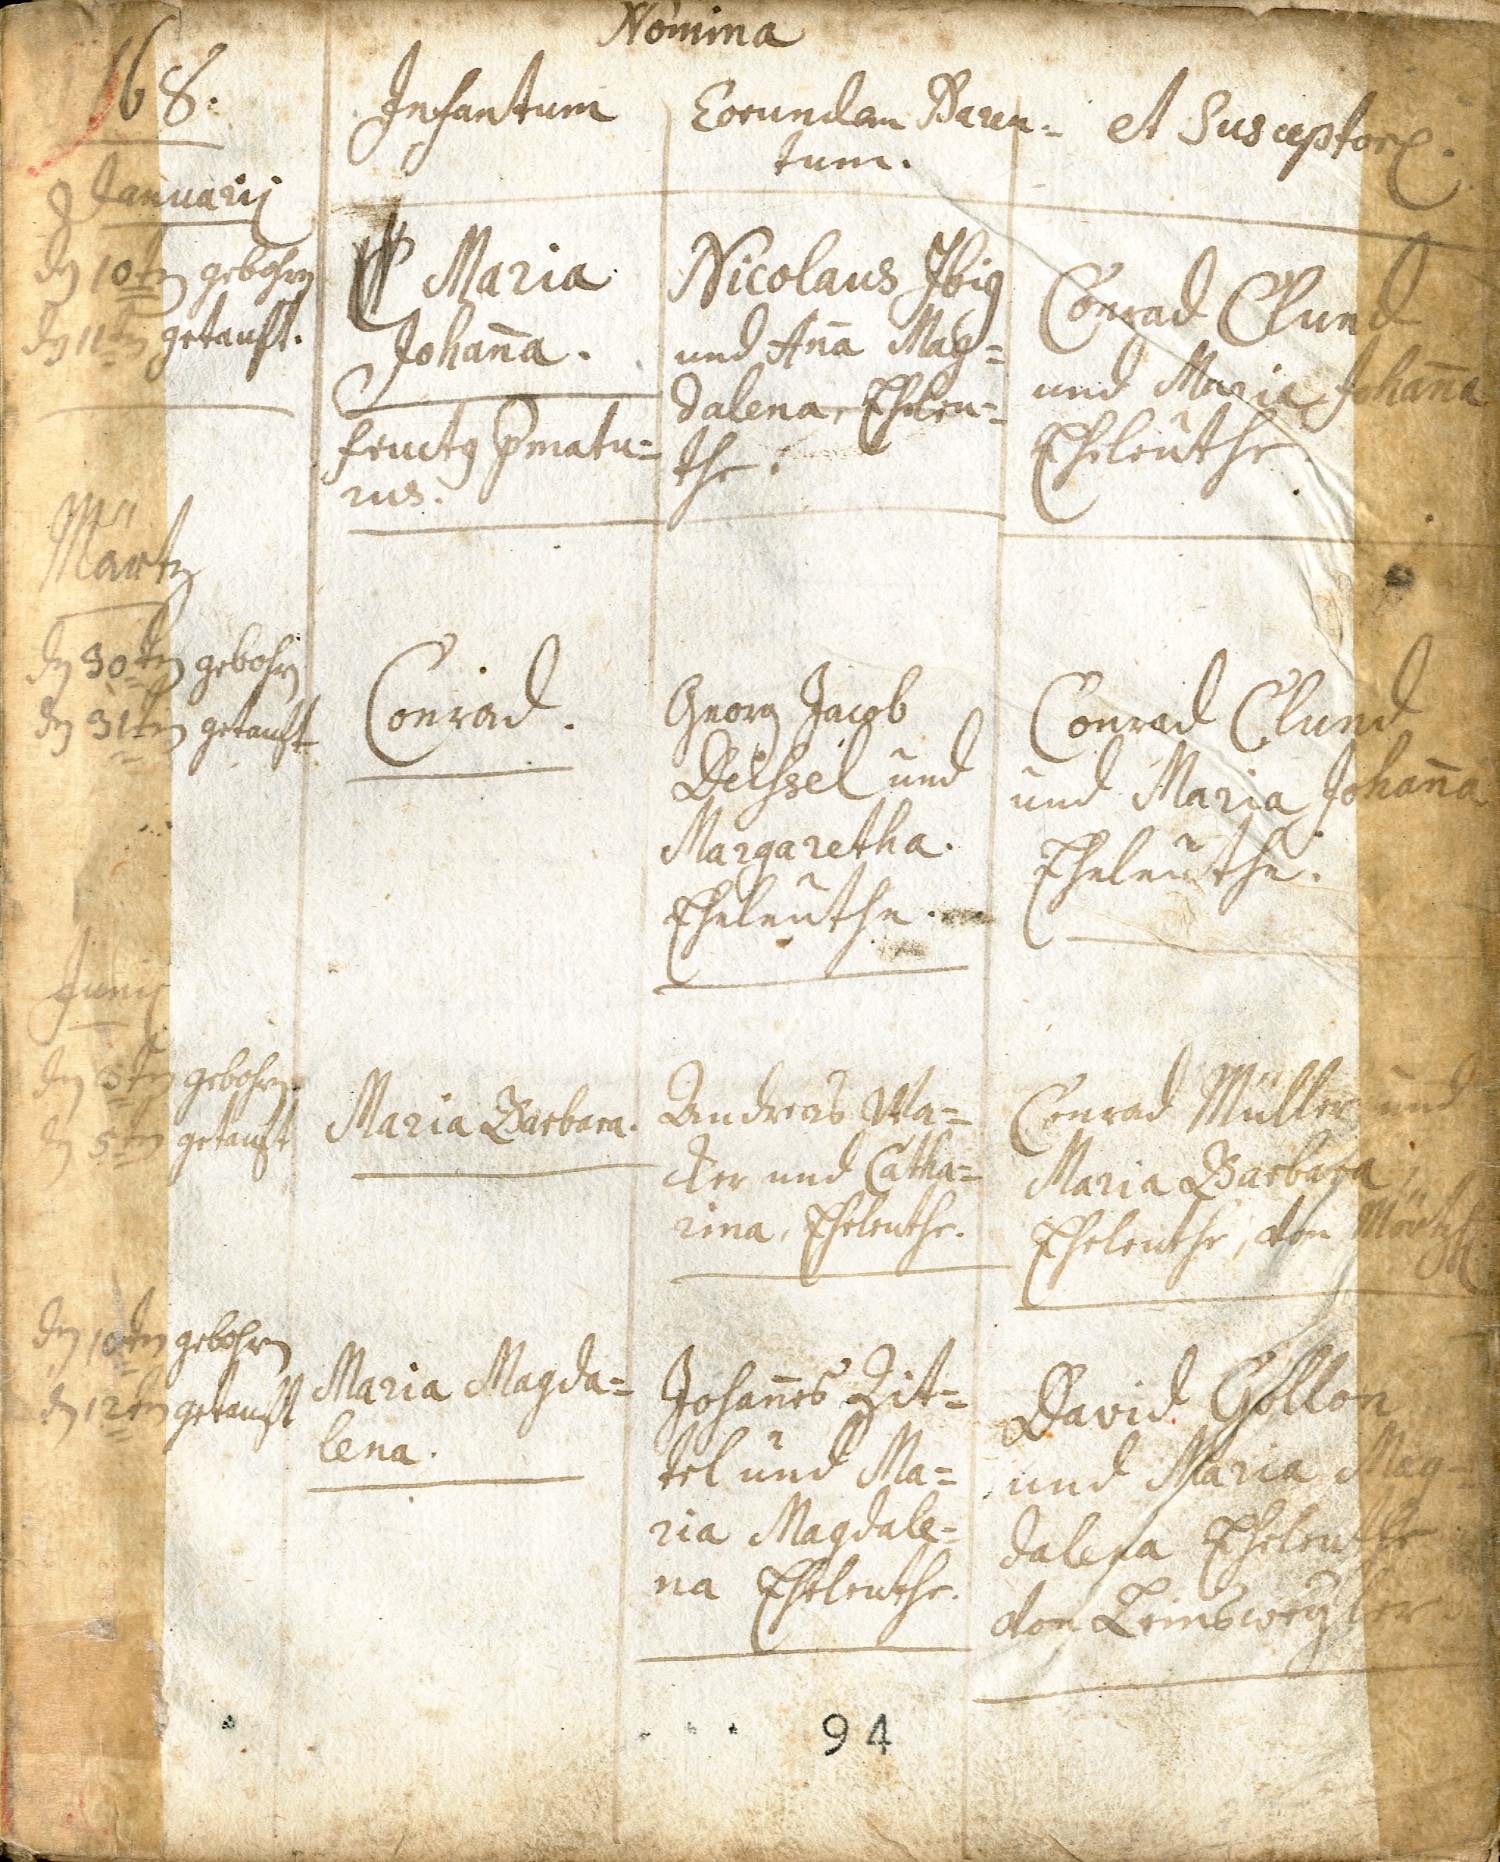 Nomina
168.
Infantum
Eorundem Paren=
tum.
et Susceptor.
Januarij
dn 10ten gebohrn
dn 11ten getaufft.
Maria
Johan̄a.
fructg pmatu=
rus.
Nicolaus Ibig
und An̄a Mag=
dalena, Eheleu=
the.
Conrad Clund
und Maria Johan̄a
Eheleuthe.
Märtz
dn 30ten gebohrn
dn 31ten getaufft
Conrad.
Georg Jacob
Deissel und
Margaretha.
Eheleuthe.
Conrad Clund
und Maria Johan̄a
Eheleuthe.
Junij
dn ten gebohrn
dn 5ten getaufft
Maria Barbara.
Andreas Wa=
cker und Catha=
rina, Eheleuthe.
Conrad Müller und
Maria Barbara
Eheleuthe, von
dn 10ten gebohrn
dn 12ten getaufft
Maria Magda=
lena.
Johan̄es Zit=
tel und Ma=
ria Magdale=
na Eheleuthe.
David Gollon
und Maria Mag=
dalena Eheleuthe
von Leinsweyler
94